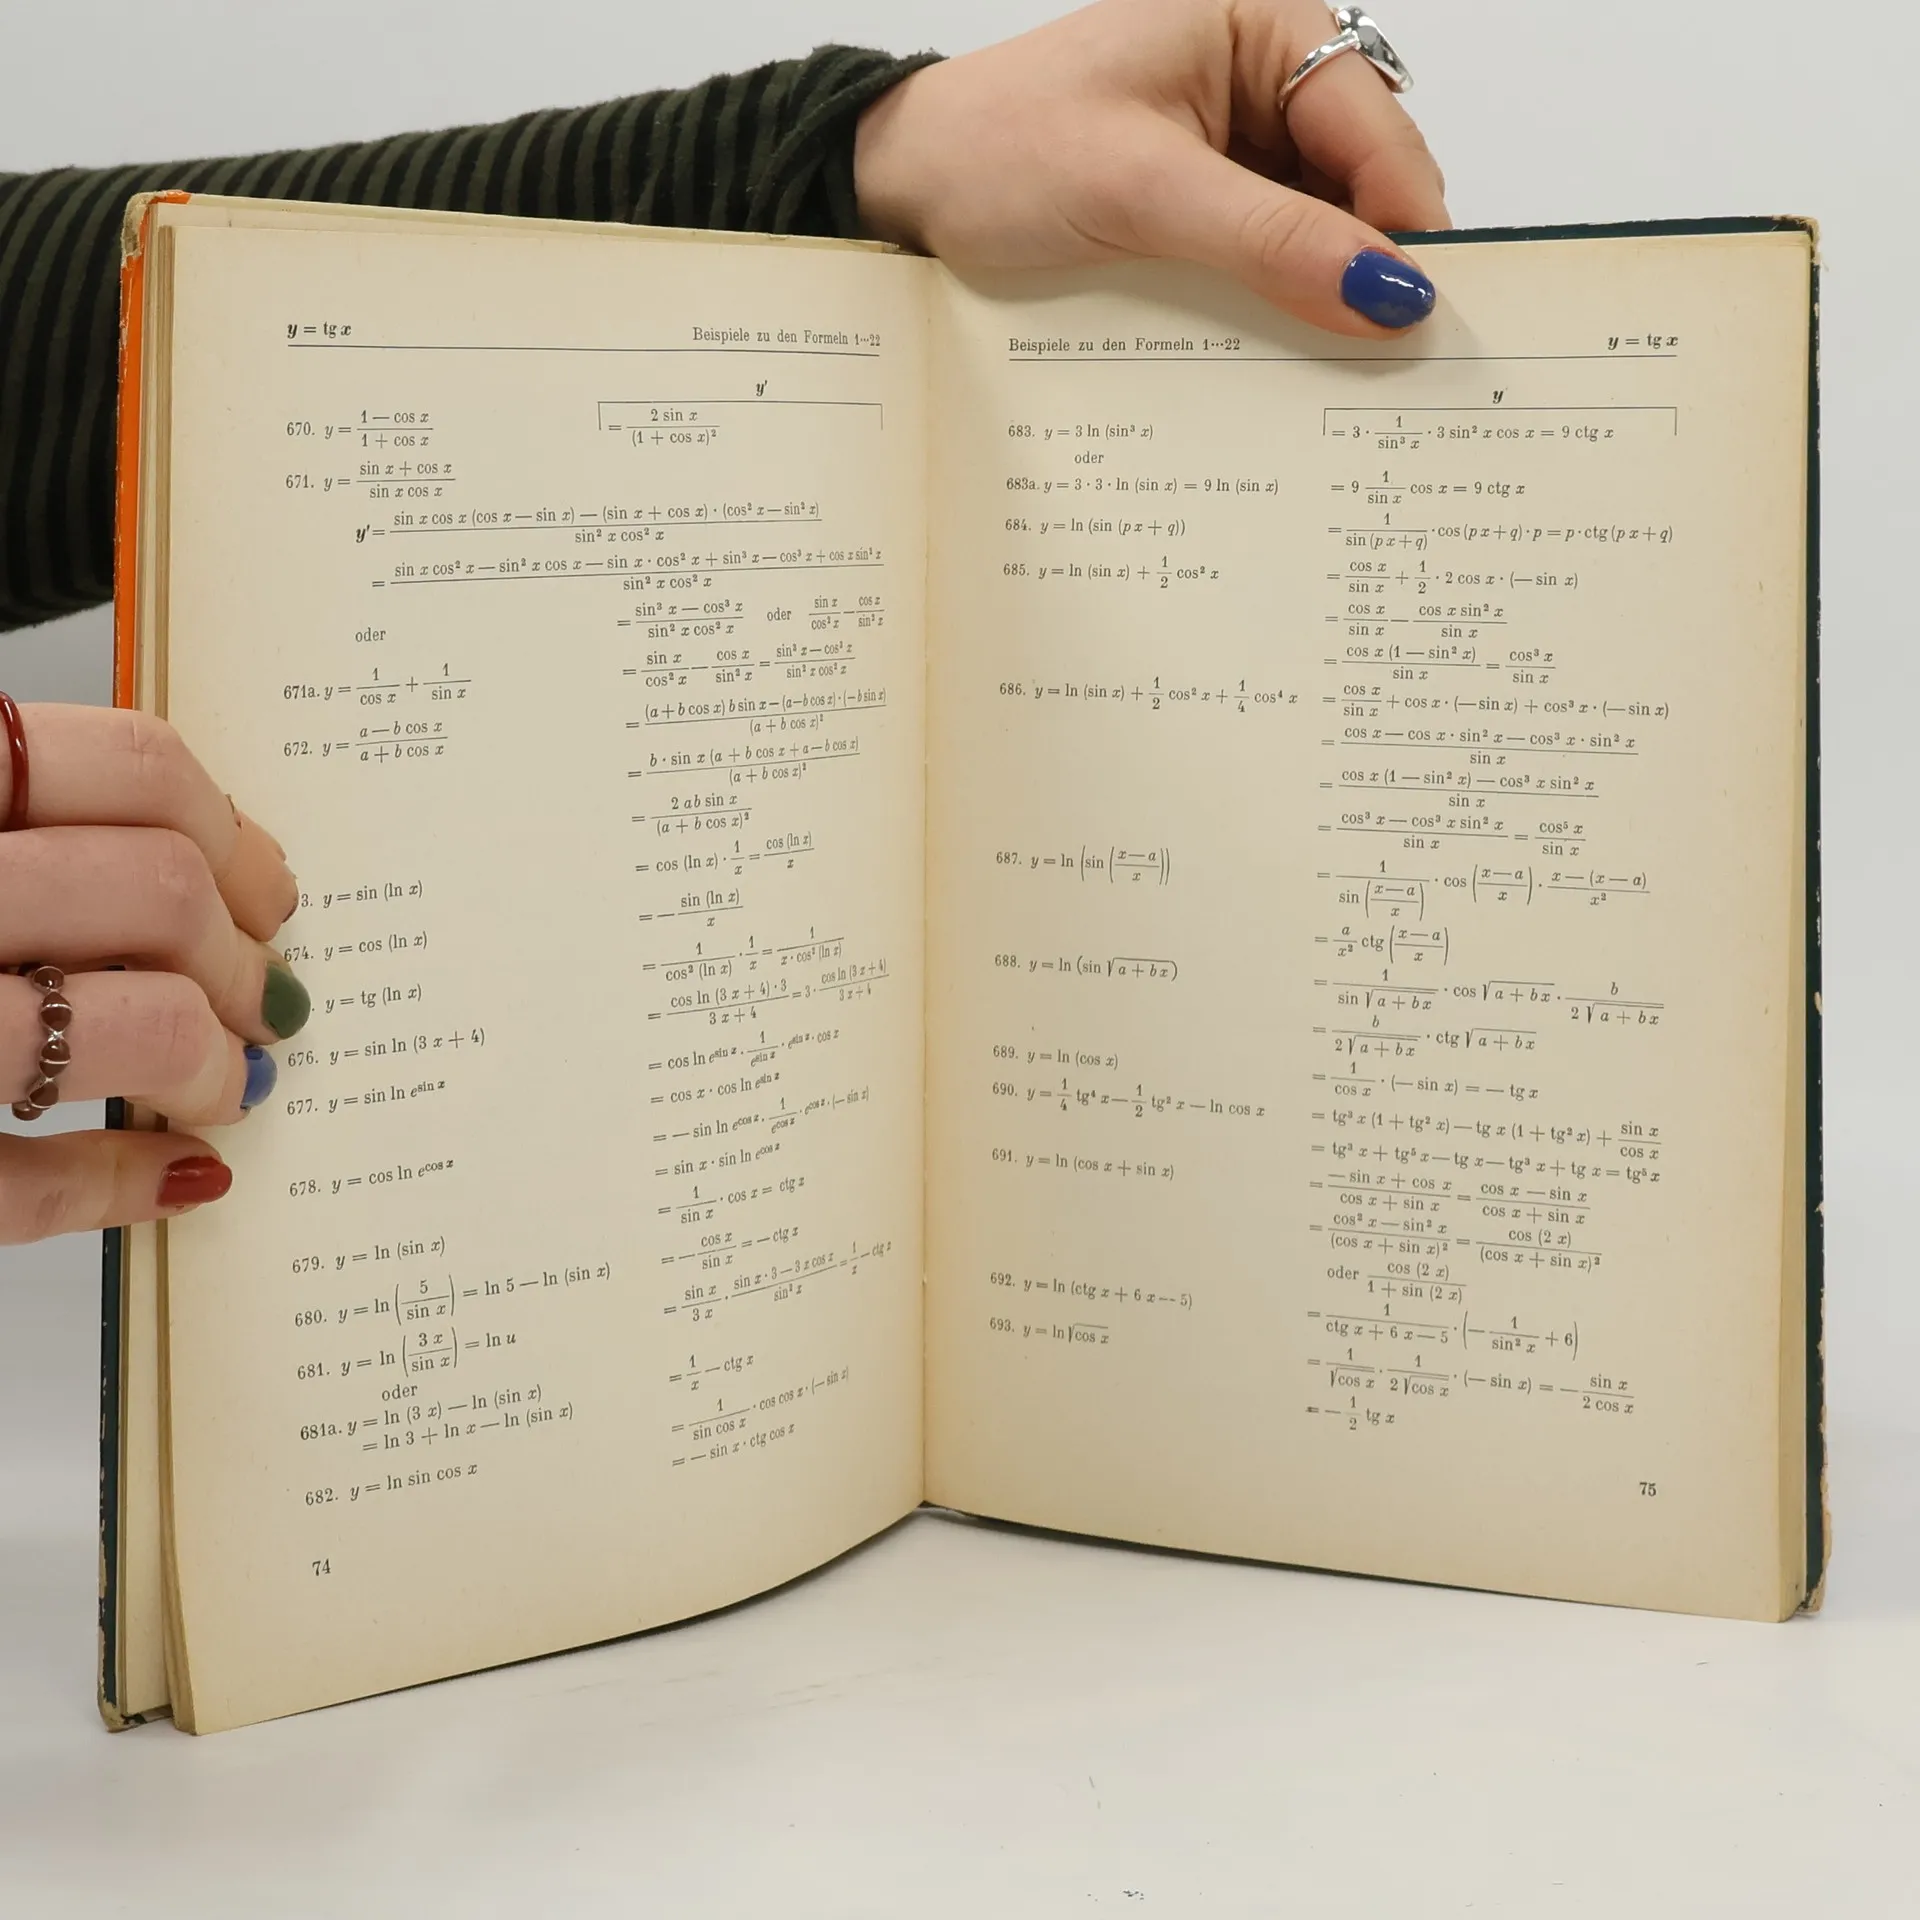 y = tg x Beispiele zu den Formeln 1···22
y'
670. y = (1 — cos x)/(1 + cos x) = (2 sin x)/((1 + cos x)²)
671. y = (sin x + cos x)/(sin x cos x)
y' = (sin x cos x (cos x — sin x) — (sin x + cos x) · (cos² x — sin² x))/(sin² x cos² x)
= (sin x cos² x — sin² x cos x — sin x · cos² x + sin³ x — cos³ x + cos x sin² x)/(sin² x cos² x)
= (sin³ x — cos³ x)/(sin² x cos² x) oder (sin x)/(cos² x) — (cos x)/(sin² x)
oder
671a. y = 1/(cos x) + 1/(sin x) = (sin x)/(cos² x) — (cos x)/(sin² x) = (sin³ x — cos³ x)/(sin² x cos² x)
672. y = (a — b cos x)/(a + b cos x) = ((a + b cos x) b sin x — (a — b cos x) · (— b sin x))/((a + b cos x)²)
= (b · sin x (a + b cos x + a — b cos x))/((a + b cos x)²)
= (2 ab sin x)/((a + b cos x)²)
3. y = sin (ln x) = cos (ln x) · 1/x = (cos (ln x))/x
674. y = cos (ln x) = — (sin (ln x))/x
. y = tg (ln x) = 1/(cos² (ln x)) · 1/x = 1/(x · cos² (ln x))
676. y = sin ln (3 x + 4) = (cos ln (3 x + 4) · 3)/(3 x + 4) = 3 · (cos ln (3 x + 4))/(3 x + 4)
677. y = sin ln e^(sin x) = cos ln e^(sin x) · 1/(e^(sin x)) · e^(sin x) · cos x
= cos x · cos ln e^(sin x)
678. y = cos ln e^(cos x) = — sin ln e^(cos x) · 1/(e^(cos x)) · e^(cos x) · (— sin x)
= sin x · sin ln e^(cos x)
679. y = ln (sin x) = 1/(sin x) · cos x = ctg x
680. y = ln (5/(sin x)) = ln 5 — ln (sin x) = — (cos x)/(sin x) = — ctg x
681. y = ln ((3 x)/(sin x)) = ln u = (sin x)/(3 x) · (sin x · 3 — 3 x cos x)/(sin² x) = 1/x — ctg x
oder
681a. y = ln (3 x) — ln (sin x)
= ln 3 + ln x — ln (sin x) = 1/x — ctg x
682. y = ln sin cos x = 1/(sin cos x) · cos cos x · (— sin x)
= — sin x · ctg cos x
74
Beispiele zu den Formeln 1···22 y = tg x
y'
683. y = 3 ln (sin³ x) = 3 · 1/(sin³ x) · 3 sin² x cos x = 9 ctg x
oder
683a. y = 3 · 3 · ln (sin x) = 9 ln (sin x) = 9 1/(sin x) cos x = 9 ctg x
684. y = ln (sin (p x + q)) = 1/(sin (p x + q)) · cos (p x + q) · p = p · ctg (p x + q)
685. y = ln (sin x) + 1/2 cos² x = (cos x)/(sin x) + 1/2 · 2 cos x · (— sin x)
= (cos x)/(sin x) — (cos x sin² x)/(sin x)
= (cos x (1 — sin² x))/(sin x) = (cos³ x)/(sin x)
686. y = ln (sin x) + 1/2 cos² x + 1/4 cos⁴ x = (cos x)/(sin x) + cos x · (— sin x) + cos³ x · (— sin x)
= (cos x — cos x · sin² x — cos³ x · sin² x)/(sin x)
= (cos x (1 — sin² x) — cos³ x sin² x)/(sin x)
= (cos³ x — cos³ x sin² x)/(sin x) = (cos⁵ x)/(sin x)
687. y = ln (sin ((x — a)/x)) = 1/(sin ((x — a)/x)) · cos ((x — a)/x) · (x — (x — a))/(x²)
= a/(x²) ctg ((x — a)/x)
688. y = ln (sin √(a + bx)) = 1/(sin √(a + bx)) · cos √(a + bx) · b/(2 √(a + bx))
= b/(2 √(a + bx)) · ctg √(a + bx)
689. y = ln (cos x) = 1/(cos x) · (— sin x) = — tg x
690. y = 1/4 tg⁴ x — 1/2 tg² x — ln cos x = tg³ x (1 + tg² x) — tg x (1 + tg² x) + (sin x)/(cos x)
= tg³ x + tg⁵ x — tg x — tg³ x + tg x = tg⁵ x
691. y = ln (cos x + sin x) = (— sin x + cos x)/(cos x + sin x) = (cos x — sin x)/(cos x + sin x)
= (cos² x — sin² x)/((cos x + sin x)²) = (cos (2 x))/((cos x + sin x)²)
oder (cos (2 x))/(1 + sin (2 x))
692. y = ln (ctg x + 6 x — 5) = 1/(ctg x + 6 x — 5) · (— 1/(sin² x) + 6)
693. y = ln √(cos x) = 1/(√(cos x)) · 1/(2 √(cos x)) · (— sin x) = — (sin x)/(2 cos x)
= — 1/2 tg x
75